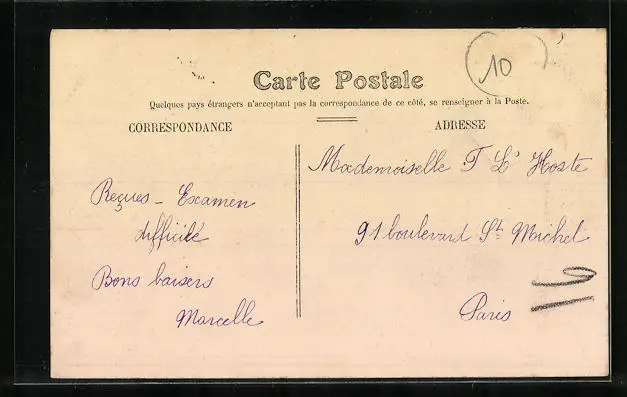 10
Carte Postale
Quelques pays étrangers n'acceptant pas la correspondance de ce côté, se renseigner à la Poste.
CORRESPONDANCE
ADRESSE
Reçues - Examen
difficile
Bons baisers
Marcelle
Mademoiselle F L'Hoste
91 boulevard St Michel
Paris